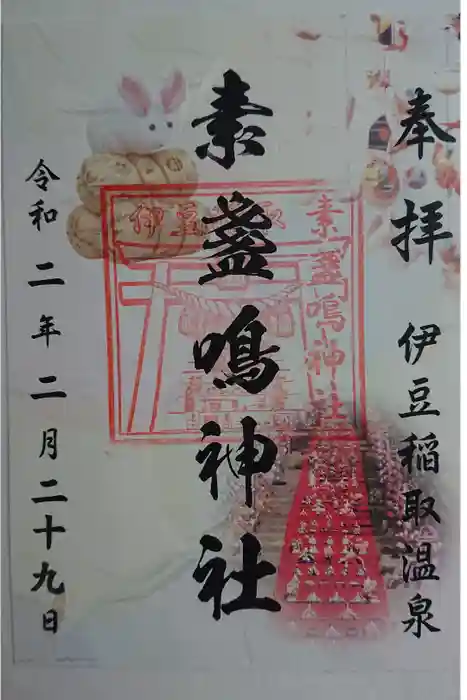 奉拝 伊豆稲取温泉
素盞鳴神社
令和二年二月二十九日
伊豆稲取
素盞鳴神社